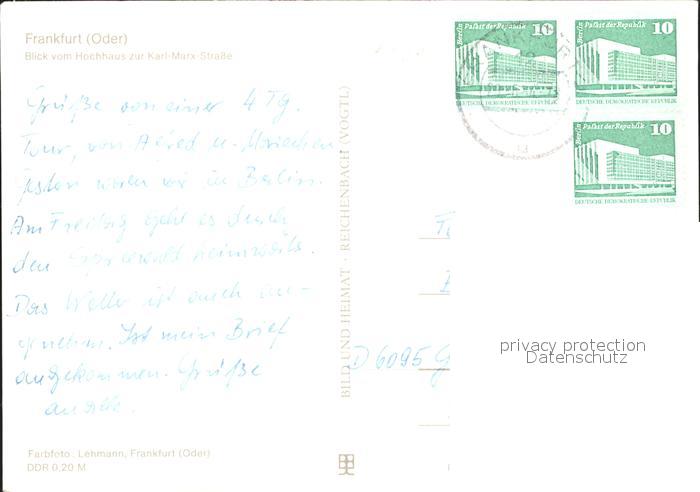 Frankfurt (Oder)
Blick vom Hochhaus zur Karl-Marx-Straße
Grüße von einer 4 Tg.
Tour, von Alfred u. Mariechen
Gestern waren wir in Berlin.
Am Freitag geht es durch
den Spreewald heimwärts.
Das Wetter ist auch an-
genehm. Ist mein Brief
angekommen. Grüße
an alle.
Farbfoto: Lehmann, Frankfurt (Oder)
DDR 0,20 M
BILD UND HEIMAT · REICHENBACH (VOGTL)
Berlin Palast der Republik 10
DEUTSCHE DEMOKRATISCHE REPUBLIK
Berlin Palast der Republik 10
DEUTSCHE DEMOKRATISCHE REPUBLIK
Berlin Palast der Republik 10
DEUTSCHE DEMOKRATISCHE REPUBLIK
D 6095 G
privacy protection
Datenschutz